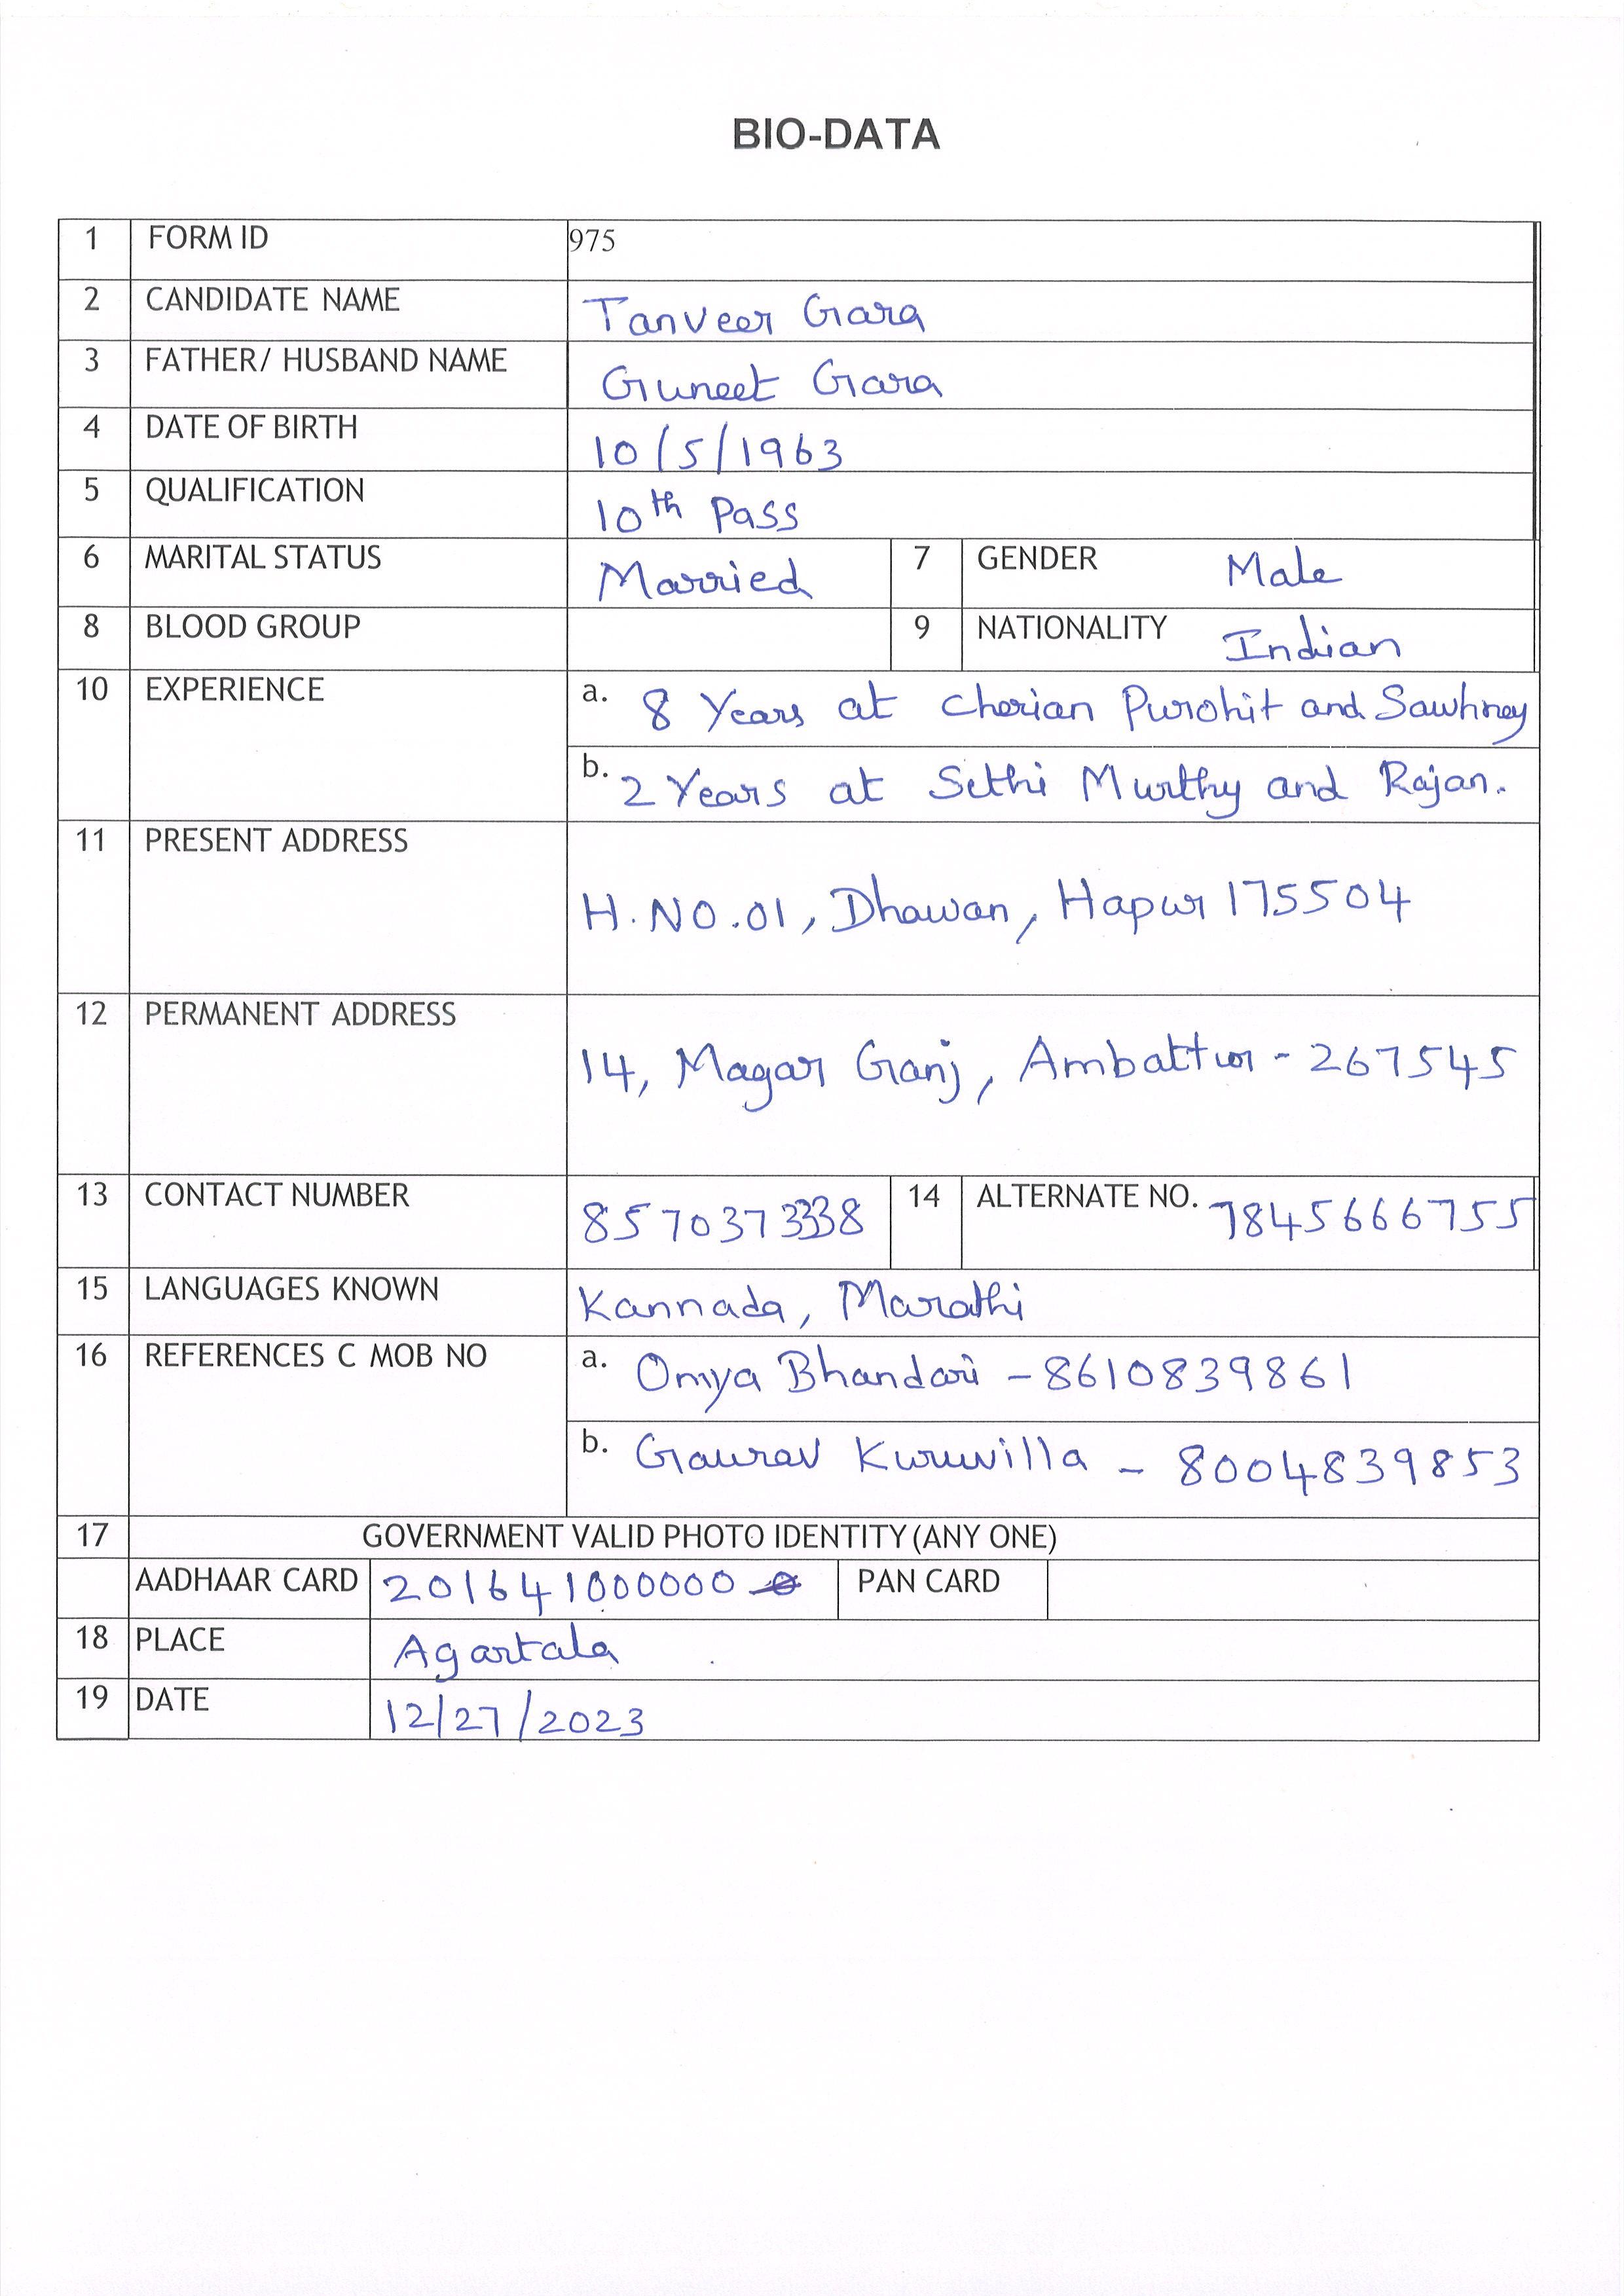 BIO-DATA
1 FORM ID 975
2 CANDIDATE NAME Tanveer Gara
3 FATHER/ HUSBAND NAME Guneet Gara
4 DATE OF BIRTH 10/5/1963
5 QUALIFICATION 10th Pass
6 MARITAL STATUS Married 7 GENDER Male
8 BLOOD GROUP 9 NATIONALITY Indian
10 EXPERIENCE a. 8 Years at Cherian Purohit and Sawhney
b. 2 Years at Sethi Murthy and Rajan.
11 PRESENT ADDRESS
H.NO.01, Dhawan, Hapur 175504
12 PERMANENT ADDRESS
14, Magar Ganj, Ambattur - 267545
13 CONTACT NUMBER 8570373338 14 ALTERNATE NO. 7845666755
15 LANGUAGES KNOWN Kannada, Marathi
16 REFERENCES C MOB NO a. Omya Bhandari - 8610839861
b. Gaurav Kuruvilla - 8004839853
17 GOVERNMENT VALID PHOTO IDENTITY (ANY ONE)
AADHAAR CARD 201641000000 PAN CARD
18 PLACE Agartala
19 DATE 12/27/2023